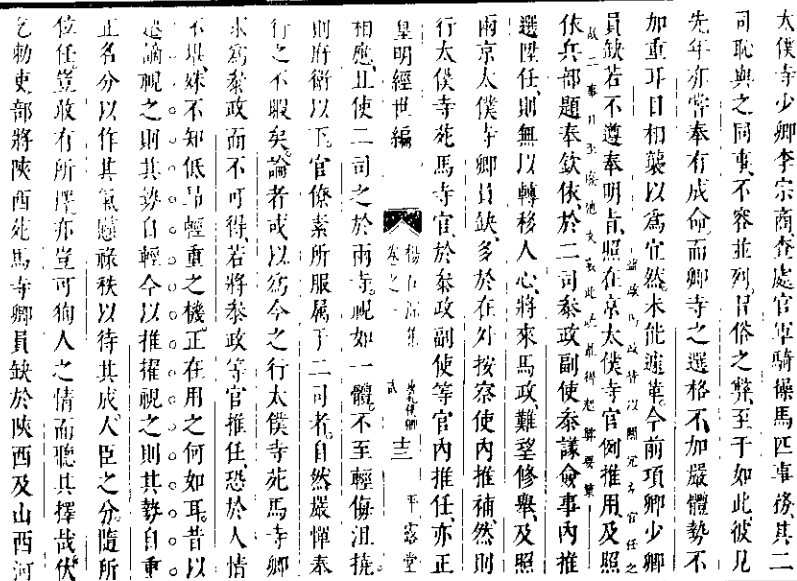 太僕寺少卿李宗商查處官軍騎操馬匹事務其二
司恥與之同事不容並列習俗之弊至于如此彼見
先年亦嘗奉有成命而卿寺之選格不加嚴體勢不
加重耳目相襲以爲宜然未能速革今前項卿少卿
員缺若不遵奉明旨照在京太僕寺官例推用及照
依兵部題奉欽依於二司叅政副使叅議僉事內推
選陞任則無以轉移人心將來馬政難望修舉及照
兩京太僕寺卿員缺多於在外按察使內推補然則
行太僕寺苑馬寺官於叅政副使等官內推任亦正
皇明經世編 卷之 十三 平露堂
相應且使二司之於兩寺視如一體不至輕侮沮撓
則府衛以下官僚素所服属于二司者自然嚴憚奉
行之不暇矣論者或以爲今之行太僕寺苑馬寺卿
求爲叅政而不可得若將叅政等官推任恐於人情
不堪殊不知低昂輕重之機正在用之何如耳昔以
遷謫視之則其勢自輕今以推擢視之則其勢自重
正名分以作其氣懸祿秩以待其成人臣之分隨所
位任豈敢有所擇亦豈可狥人之情而聽其擇哉伏
乞勅吏部將陝西苑馬寺卿員缺於陝西及山西河